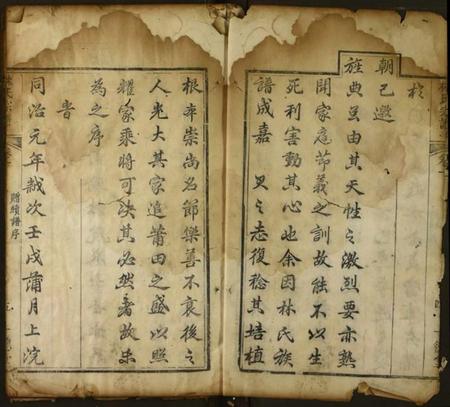 於
朝已邀
旌典是由其天性之激烈要亦熟
聞家庭節義之訓故能不以生
死利害動其心也余因林氏族
譜成嘉 昆之志復稔其培植
根本崇尚名節樂善不衰後之
人光大其家追莆田之盛以照
耀家乘將可决其必然者故末
為之序
時
同治元年歲次壬戌蒲月上浣
贈續譜序